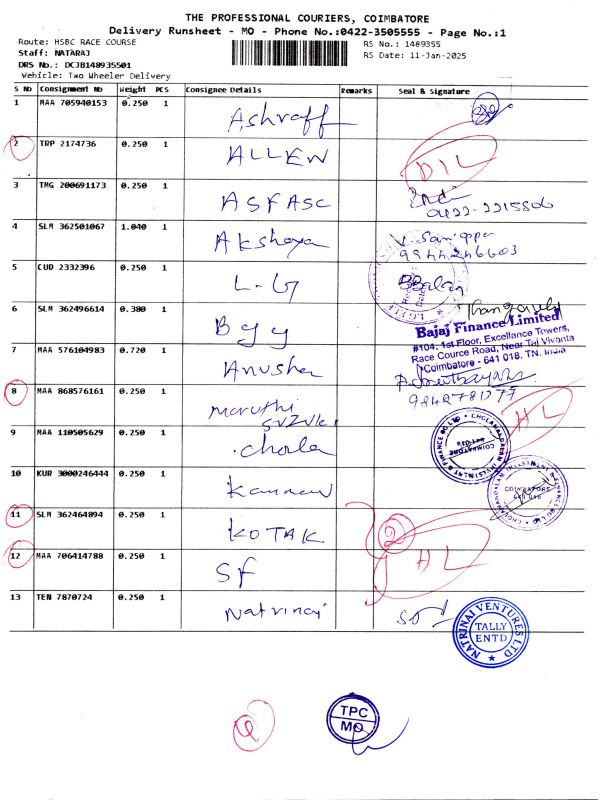 THE PROFESSIONAL COURIERS, COIMBATORE
Delivery Runsheet - MO - Phone No.:0422-3505555 - Page No.:1
Route: HSBC RACE COURSE
RS No.: 1489355
Staff: NATARAJ
RS Date: 11-Jan-2025
DRS No.: DCJB148935501
Vehicle: Two Wheeler Delivery
S No Consignment No Weight PCS Consignee Details Remarks Seal & Signature
1 MAA 705940153 0.250 1 Ashraff
2 TRP 2174736 0.250 1 ALLEN DIL
3 TMG 200691173 0.250 1 ASFASC
0422-2215806
4 SLM 362501067 1.040 1 Akshaya
9944246603
5 CUD 2332396 0.250 1 L-G BBalan
6 SLM 362496614 0.380 1
Bajaj Finance Limited
#104, 1st Floor, Excellance Towers,
Race Cource Road, Near Taj Vivanta
Coimbatore - 641 018. TN. India
7 MAA 576104983 0.720 1 Anusha
8 MAA 868576161 0.250 1 maruthi
SVZVKi HL
9 MAA 110505629 0.250 1 chola
CHOLAMANDALAM INVESTMENT & FINANCE CO LTD
COIMBATORE
641 018
10 KUR 3000246444 0.250 1 Kannan
CHOLAMANDALAM INVESTMENT & FINANCE CO LTD
COIMBATORE
641 018
11 SLM 362464894 0.250 1 KOTAK 2
12 MAA 706414788 0.250 1 SF HL
13 TEN 7870724 0.250 1 Natrinai
NATRINAI VENTURES LTD
TALLY
ENTD
TPC
MO